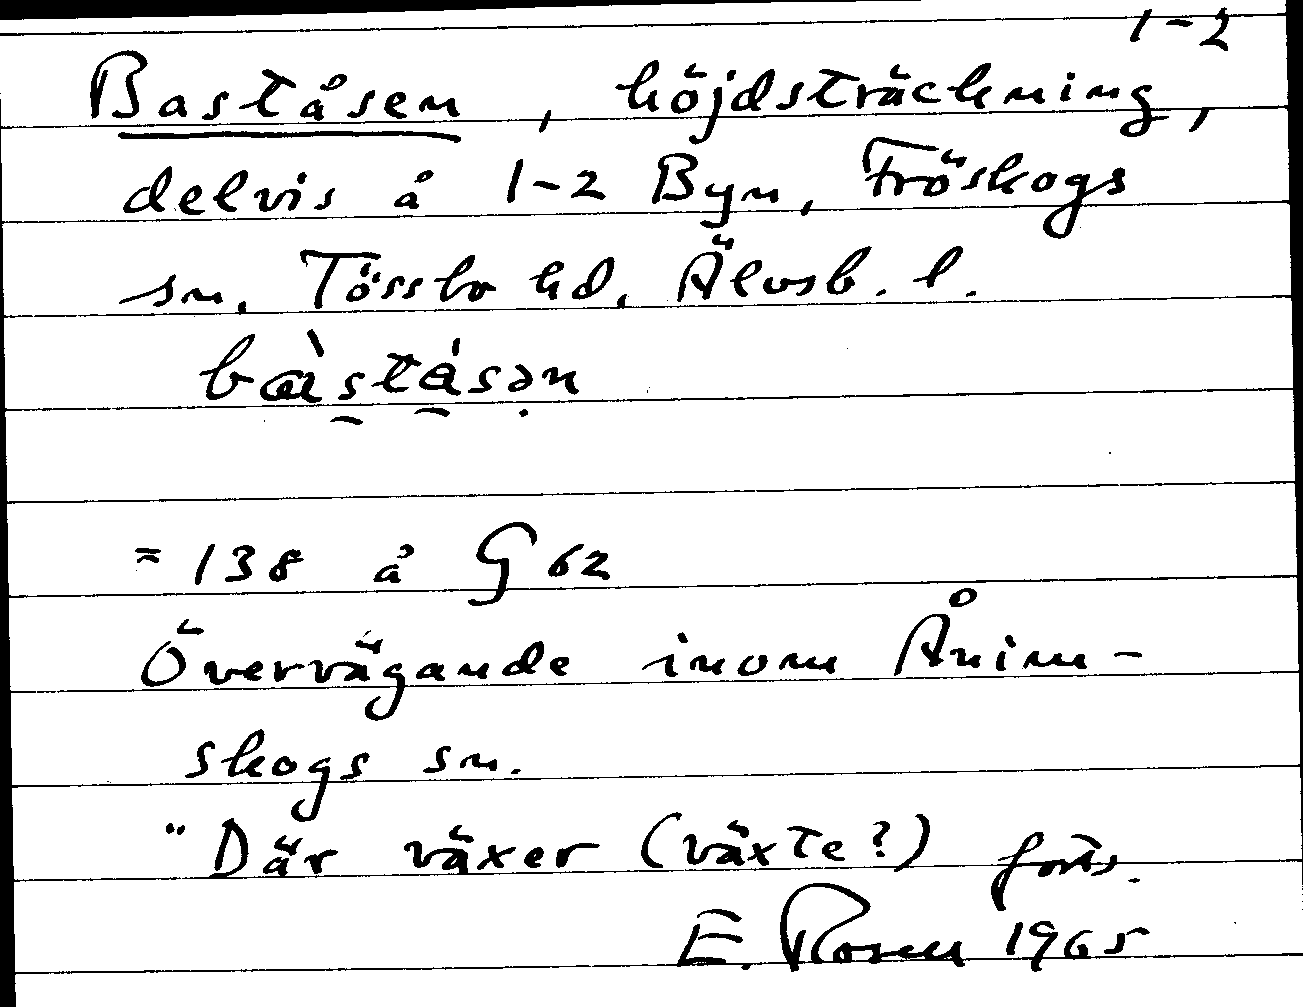 1-2
Baståsen, höjdsträckning,
delvis å 1-2 Byn, Fröskogs
sn. Tössbo hd, Älvsb. l.
bàstásən
= 138 å G 62
Övervägande inom Ånim-
skogs sn.
"Där växer (växte?) forts.
E. Rosén 1965